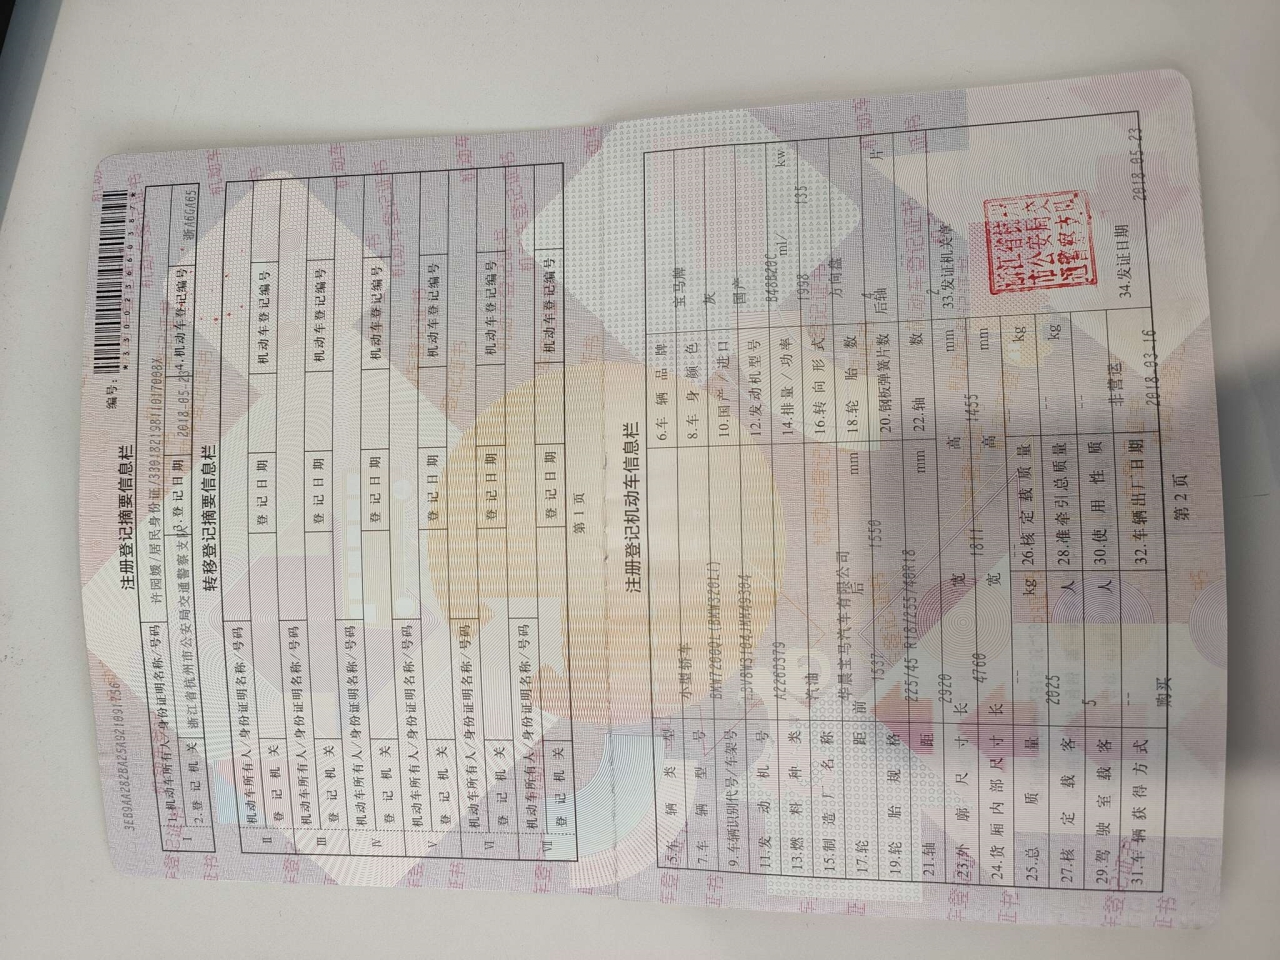 3EB9AA282BA25A92109175G
编号：
注册登记摘要信息栏
Ⅰ 1.机动车所有人/身份证明名称/号码 许园媛/居民身份证/33018219811017008X
2.登记机关 浙江省杭州市公安局交通警察支队 3.登记日期 2018-05-23 4.机动车登记编号 浙A6GA65
转移登记摘要信息栏
Ⅱ 机动车所有人/身份证明名称/号码
登记机关 登记日期 机动车登记编号
Ⅲ 机动车所有人/身份证明名称/号码
登记机关 登记日期 机动车登记编号
Ⅳ 机动车所有人/身份证明名称/号码
登记机关 登记日期 机动车登记编号
Ⅴ 机动车所有人/身份证明名称/号码
登记机关 登记日期 机动车登记编号
Ⅵ 机动车所有人/身份证明名称/号码
登记机关 登记日期 机动车登记编号
Ⅶ 机动车所有人/身份证明名称/号码
登记机关 登记日期 机动车登记编号
第 1 页
注册登记机动车信息栏
5.车辆类型 小型轿车 6.车辆品牌 宝马牌
7.车辆型号 BMW7200QL(BMW320Li) 8.车身颜色 灰
9.车辆识别代号/车架号 10.国产/进口 国产
11.发动机号 A226D379 12.发动机型号 B48B20C
13.燃料种类 汽油 14.排量/功率 1998 ml/ 135 kw
15.制造厂名称 华晨宝马汽车有限公司 16.转向形式 方向盘
17.轮距 前 1537 后 1550 mm 18.轮胎数 4
19.轮胎规格 225/45 R18/255/40R18 20.钢板弹簧片数 后轴 片
21.轴距 2920 mm 22.轴数 2
23.外廓尺寸 长 4760 宽 1811 高 1455 mm 33.发证机关章
24.货厢内部尺寸 长 宽 高 mm
25.总质量 2025 kg 26.核定载质量 -- kg
27.核定载客 5 人 28.准牵引总质量 -- kg
29.驾驶室载客 -- 人 30.使用性质 非营运
31.车辆获得方式 购买 32.车辆出厂日期 2018-03-16 34.发证日期 2018-05-23
第 2 页